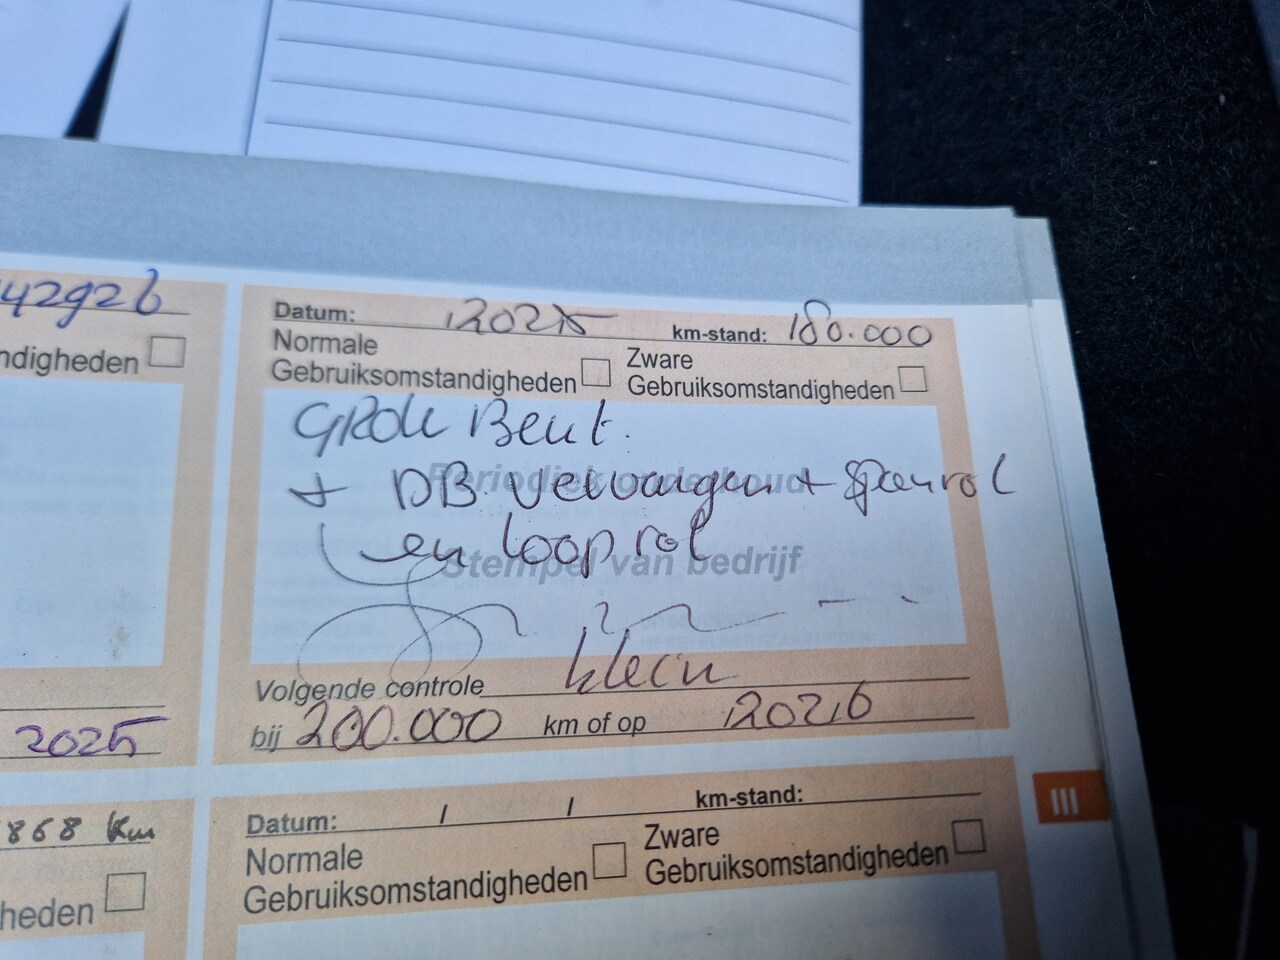 42926
ndigheden
2025
868 Km
heden
Datum: 2025 km-stand: 180.000
Normale Gebruiksomstandigheden Zware Gebruiksomstandigheden
Grote Beurt.
Periodiek onderhoud
+ DB vervangen + spanrol
en looprol
Stempel van bedrijf
klein
Volgende controle
bij 200.000 km of op 2026
III
Datum: / / km-stand:
Normale Gebruiksomstandigheden Zware Gebruiksomstandigheden